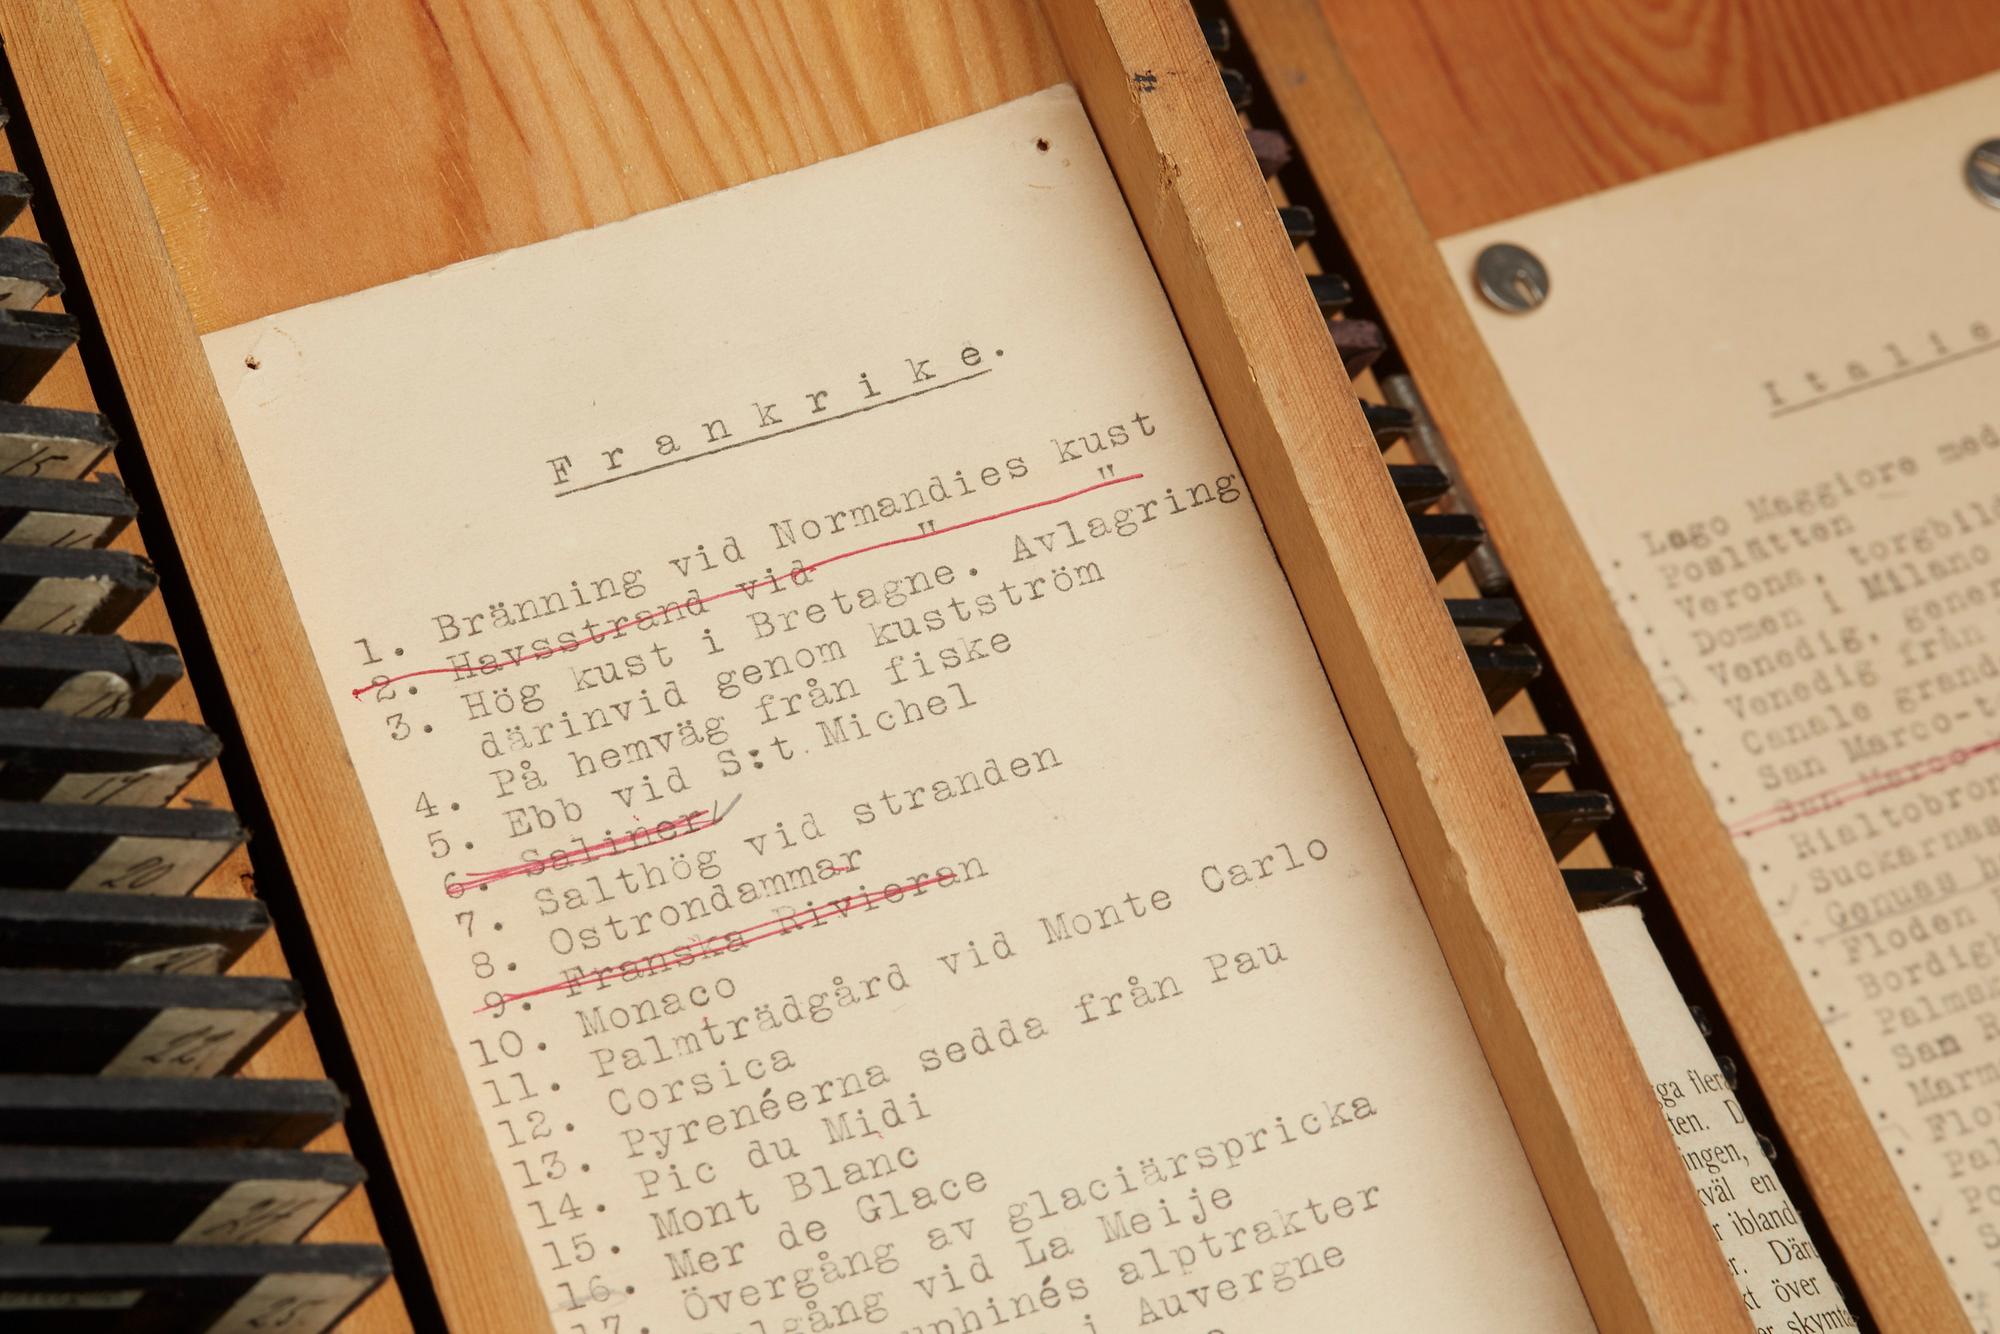 Frankrike.
1. Bränning vid Normandies kust
2. Havsstrand vid " "
3. Hög kust i Bretagne. Avlagring
därinvid genom kustström
4. På hemväg från fiske
5. Ebb vid S:t Michel
6. Saliner/
7. Salthög vid stranden
8. Ostrondammar
9. Franska Rivieran
10. Monaco
11. Palmträdgård vid Monte Carlo
12. Corsica
13. Pyrenéerna sedda från Pau
14. Pic du Midi
15. Mont Blanc
16. Mer de Glace
17. Övergång av glaciärspricka
vid La Meije
alptrakter
i Auvergne
Italie
Lago Maggiore med
Poslätten
Verona, torgbild
Domen i Milano
Venedig, gener
Venedig från
Canale grand
San Marco-t
San Marco
Rialtobron
Suckarnas
Genuas h
Floden
Bordigh
Palms
San R
Marm
Flo
Pal
Po
S
gga flera
ten. D
ingen,
kväl en
r ibland
r. Där
kt över
er skymta
15
19
20
21
22
25.